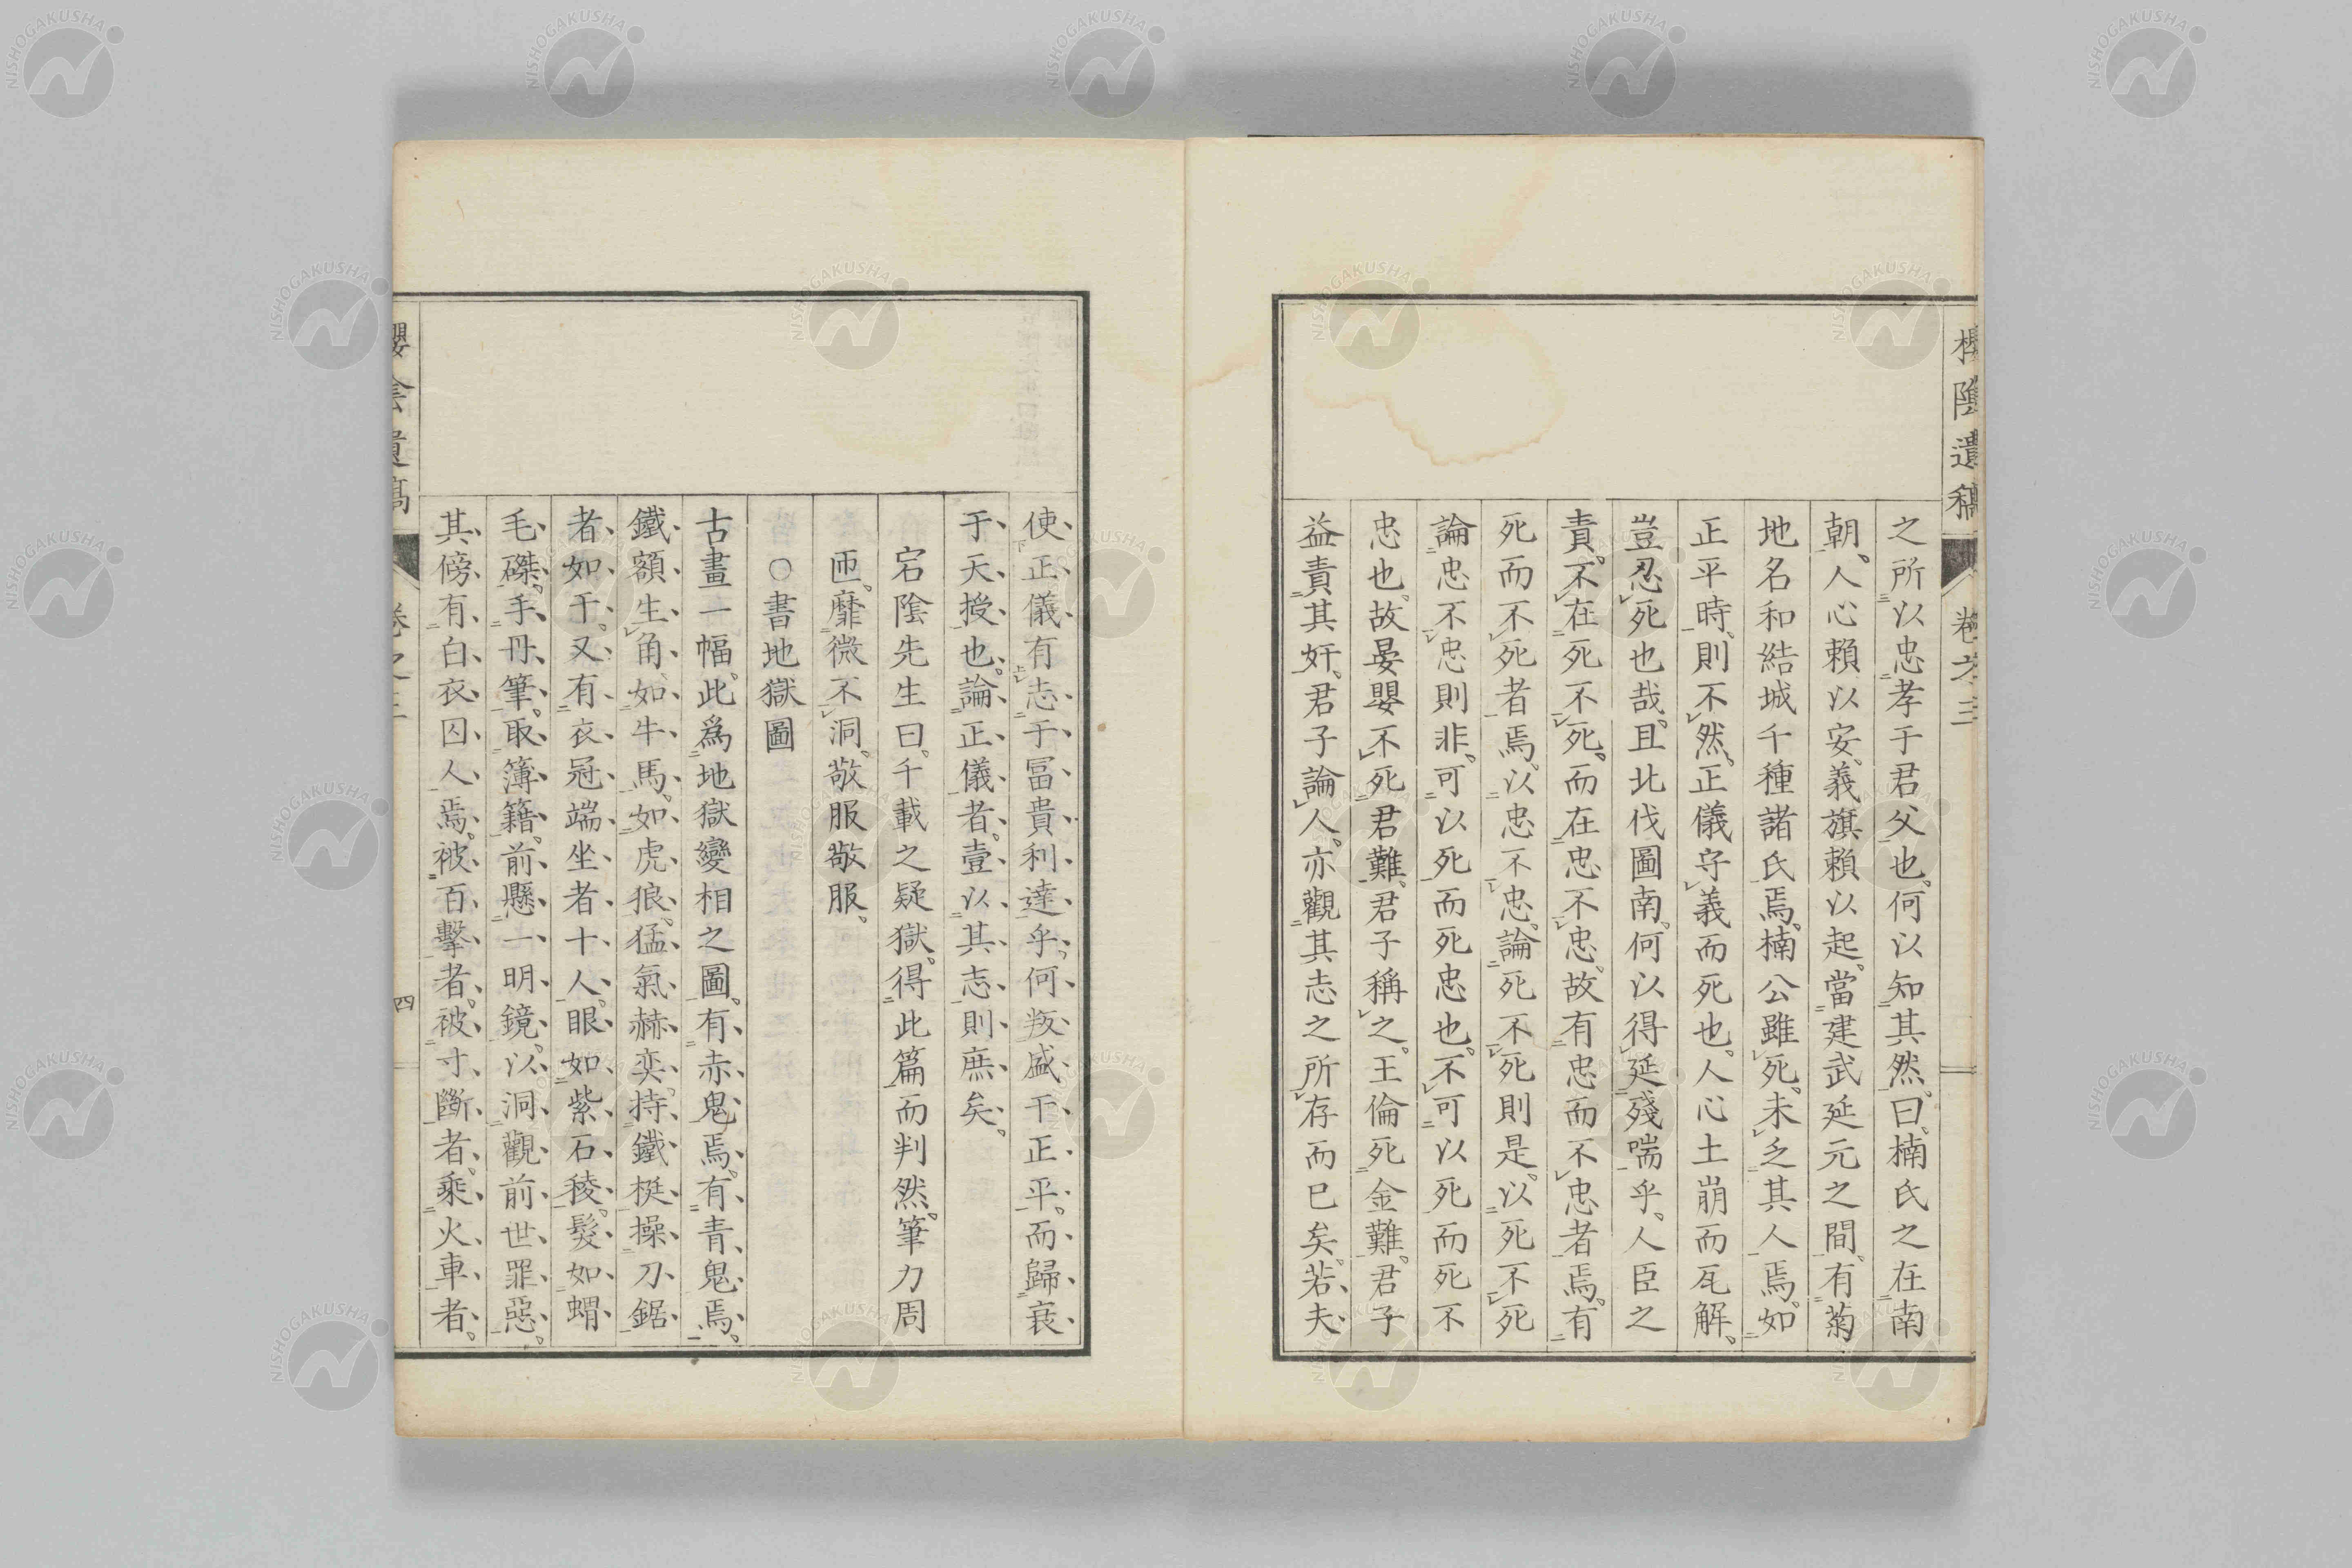 櫻陰遺稿 卷之三
之所以忠孝于君父也。何以知其然。曰。楠氏之在南
朝。人心賴以安。義旗賴以起。當建武延元之間。有菊
地名和結城千種諸氏焉。楠公雖死。未乏其人焉。如
正平時。則不然。正儀守義而死也。人心土崩而瓦解。
豈忍死也哉。且北伐圖南。何以得延殘喘乎。人臣之
責。不在死不死。而在忠不忠。故有忠而不忠者焉。有
死而不死者焉。以忠不忠。論死不死則是。以死不死
論忠不忠則非。可以死而死忠也。不可以死而死不
忠也。故晏嬰不死君難。君子稱之。王倫死金難。君子
益責其奸。君子論人。亦觀其志之所存而已矣。若夫
使正儀有志于冨貴利達乎。何叛盛于正平。而歸衰
于天授也。論正儀者。壹以其志則庶矣。
宕陰先生曰。千載之疑獄。得此篇而判然。筆力周
匝。靡微不洞。敬服敬服。
○書地獄圖
古畫一幅。此爲地獄變相之圖。有赤鬼焉。有青鬼焉。
鐵額生角。如牛馬。如虎狼。猛氣赫奕。持鐵梃操刀鋸
者如干。又有衣冠端坐者十人。眼如紫石稜。髮如蝟
毛磔。手丹筆。取簿籍。前懸一明鏡。以洞觀前世罪惡。
其傍有白衣囚人焉。被百擊者。被寸斷者。乘火車者。
櫻陰遺稿 卷之三 四
NISHOGAKUSHA